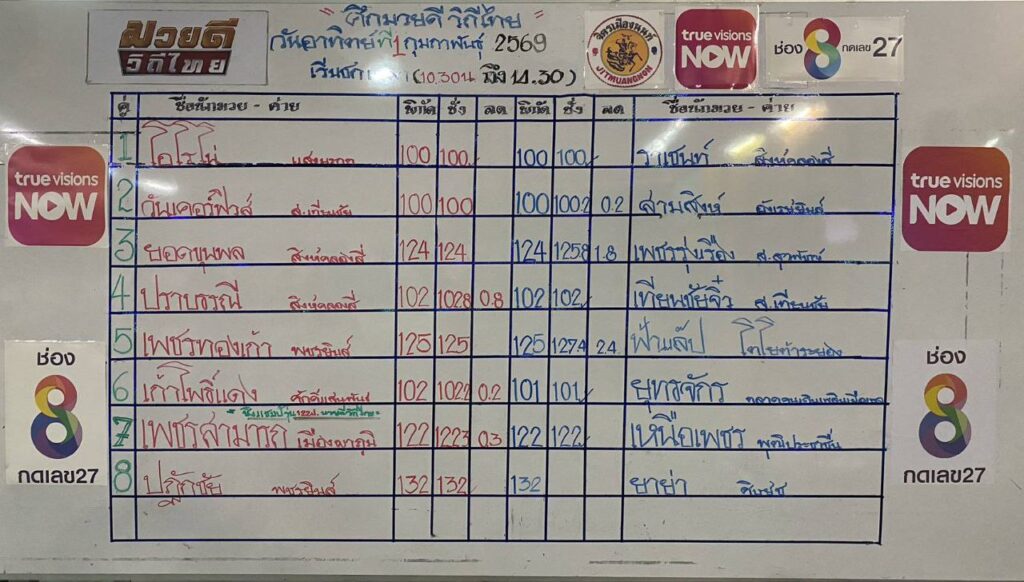 มวยดี
วิถีไทย
" ศึกมวยดี วิถีไทย "
วันอาทิตย์ที่ 1 กุมภาพันธุ์ 2569
(10.30น ถึง 14.30)
จิตรเมืองนนท์
JITMUANGNON
true visions
NOW
ช่อง 8 กดเลข 27
คู่ ชื่อนักมวย - ค่าย พิกัด ชั่ง ลด พิกัด ชั่ง ลด ชื่อนักมวย - ค่าย
1 โอโรโน่ 100 100 100 100 ราเชนท์ สิงห์คลองสี่
2 วันเดอร์ฟิวส์ ส.เทียนชัย 100 100 100 100.2 0.2 สามสิงห์
3 ยอดขุนพล สิงห์คลองสี่ 124 124 124 125.8 1.8 เพชรรุ่งเรือง
4 ปราบธรณี สิงห์คลองสี่ 102 102.8 0.8 102 102 เทียนชัยจิ๋ว ส.เทียนชัย
5 เพชรทองเก้า พชรยินส์ 125 125 125 127.4 2.4 ฟ้าแล๊ป โตโยต้าระยอง
6 เก้าโพธิ์แดง ศักดิ์แสนพันธ์ 102 102.2 0.2 101 101 ยุทธจักร
7 เพชรสามารถ เมืองผาภูมิ 122 122.3 0.3 122 122 เหนือเพชร พุฒิประชาชื่น
8 ปฏักชัย พชรยินส์ 132 132 132 ยาย่า
true visions
NOW
true visions
NOW
ช่อง
8
กดเลข27
ช่อง
8
กดเลข27